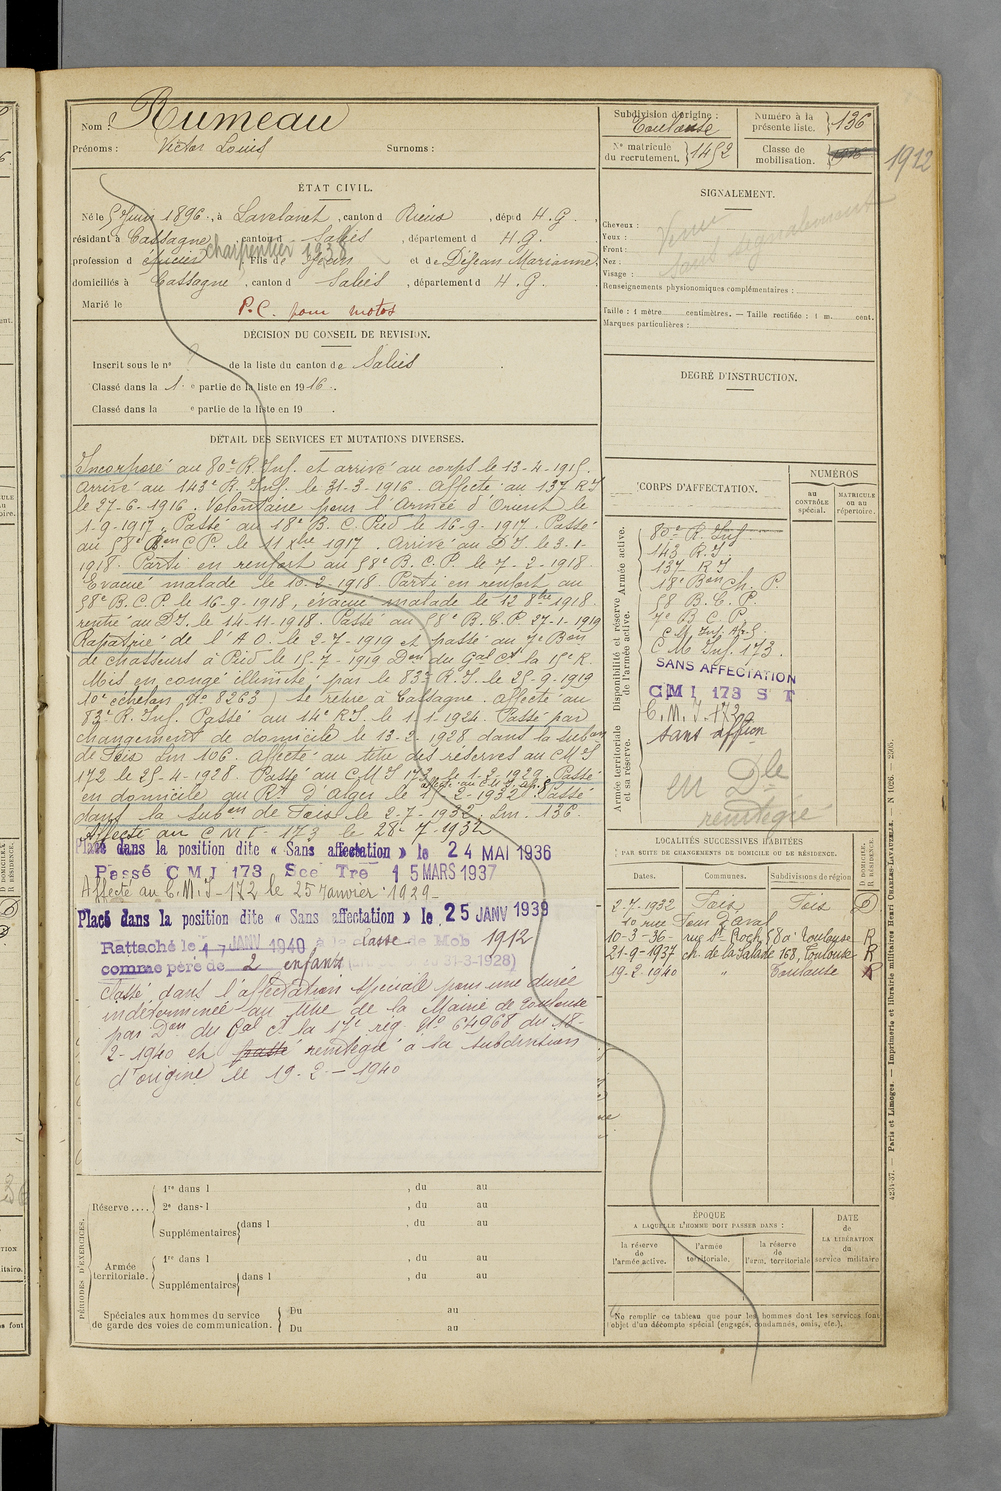 Nom : Rumeau
Prénoms : Victor Louis Surnoms :
Subdivision d'origine :
Toulouse
Nº matricule
du recrutement. 1452
Numéro à la
présente liste. 136
Classe de
mobilisation. 1912
ÉTAT CIVIL.
Né le 5 Juin 1896, à Lavelanet, canton d Rieux, dép¹ d H. G.
résidant à Cassagne, canton d Salies, département d H. G.
profession d épicier charpentier 1938, fils de Jean et de Dejean Marianne
domiciliés à Cassagne, canton d Salies, département d H. G.
Marié le
P.C. pour motos
DÉCISION DU CONSEIL DE REVISION.
Inscrit sous le nº de la liste du canton de Salies
Classé dans la 1 e partie de la liste en 1916.
Classé dans la e partie de la liste en 19 .
DÉTAIL DES SERVICES ET MUTATIONS DIVERSES.
Incorporé au 80e R. Inf. et arrivé au corps le 13-4-1915.
Arrivé au 143e R. Inf. le 31-3-1916. Affecté au 137 R I
le 27-6-1916. Volontaire pour l'Armée d'Orient le
1-9-1917. Passé au 18e B. C. Pied le 16-9-1917. Passé
au 58e Bon C P. le 11 xbre 1917. Arrivé au D I. le 3-1-
1918. Parti en renfort au 58e B. C. P. le 7-2-1918.
Evacué malade le 10-2-1918. Parti en renfort au
58e B. C. P. le 16-9-1918, évacué malade le 12 8bre 1918.
rentré au D I. le 14-11-1918. Passé au 58e B. C. P 27-1-1919
Rapatrié de l'A O. le 2-7-1919 et passé au 7e Bon
de chasseurs à Pied le 15-7-1919 Don du Gal Ct la 15e R.
Mis en congé illimité par le 83e R. I. le 25-9-1919
10e échelon Nº 8263) Se retire à Cassagne. Affecté au
83e R. Inf. Passé au 14e R I. le 1-1-1924. Passé par
changement de domicile le 13-2 1928 dans la subon
de Foix Lm 106. Affecté au titre des réserves au C M I
172 le 25-4-1928. Passé au C M I 173 le 1-2-1929. Passé
en domicile au Rt d'Alger le 2-1932. Passé
dans la subon de Foix le 2-7-1932. Lm. 136.
Affecté au C M I - 173 le 28-7-1932
Placé dans la position dite « Sans affectation » le 24 MAI 1936
Passé C M I 173 Sce Tre 15 MARS 1937
Affecté au C. M. I - 172 le 25 Janvier 1929
Placé dans la position dite « Sans affectation » le 25 JANV 1939
Rattaché le 17 JANV 1940 à la classe de Mob 1912
comme père de 2 enfants 31-3-1928)
Passé dans l'affectation spéciale pour une durée
indéterminée au titre de la Mairie de Toulouse
par Don du Gal Ct la 17e rég. Nº 64968 du 18-
2-1940 et passé réintégré à la subdivision
d'origine le 19-2-1940
PÉRIODES D'EXERCICES.
Réserve....
1re dans l , du au
2e dans l , du au
Supplémentaires dans l , du au
Armée
territoriale.
1re dans l , du au
Supplémentaires dans l , du au
Spéciales aux hommes du service
de garde des voies de communication.
Du au
Du au
SIGNALEMENT.
Cheveux :
Yeux :
Front :
Nez :
Visage :
Venu
sans signalement
Renseignements physionomiques complémentaires :
Taille : 1 mètre centimètres. — Taille rectifiée : 1 m. cent.
Marques particulières :
DEGRÉ D'INSTRUCTION.
CORPS D'AFFECTATION.
NUMÉROS
au
CONTRÔLE
spécial.
MATRICULE
ou au
répertoire.
Armée active.
Disponibilité et réserve
de l'armée active.
Armée territoriale
et sa réserve.
80e R. Inf
143 R. I.
137 R I
18e Bon Ch. P.
58 B. C. P.
7e B C P
C M Inf.
C M Inf. 173.
SANS AFFECTATION
CMI 173 S T
C. M. I. 172
sans affon
en Dle
réintégré
LOCALITÉS SUCCESSIVES HABITÉES
PAR SUITE DE CHANGEMENTS DE DOMICILE OU DE RÉSIDENCE.
Dates. Communes. Subdivisions de région
D DOMICILE.
R RÉSIDENCE.
2-7-1932 Foix Foix D
10 rue
10-3-36- rue St Roch 80 Toulouse R
21-9-1937 ch. de la Salade 168, Toulouse R
19-2-1940 " Toulouse R
ÉPOQUE
A LAQUELLE L'HOMME DOIT PASSER DANS :
la réserve
de
l'armée active.
l'armée
territoriale.
la réserve
de
l'arm. territoriale
DATE
de
LA LIBÉRATION
du
service militaire
Ne remplir ce tableau que pour les hommes dont les services font
objet d'un décompte spécial (engagés, condamnés, omis, etc.).
4234-37. — Paris et Limoges. — Imprimerie et librairie militaires Henri CHARLES-LAVAUZELLE.